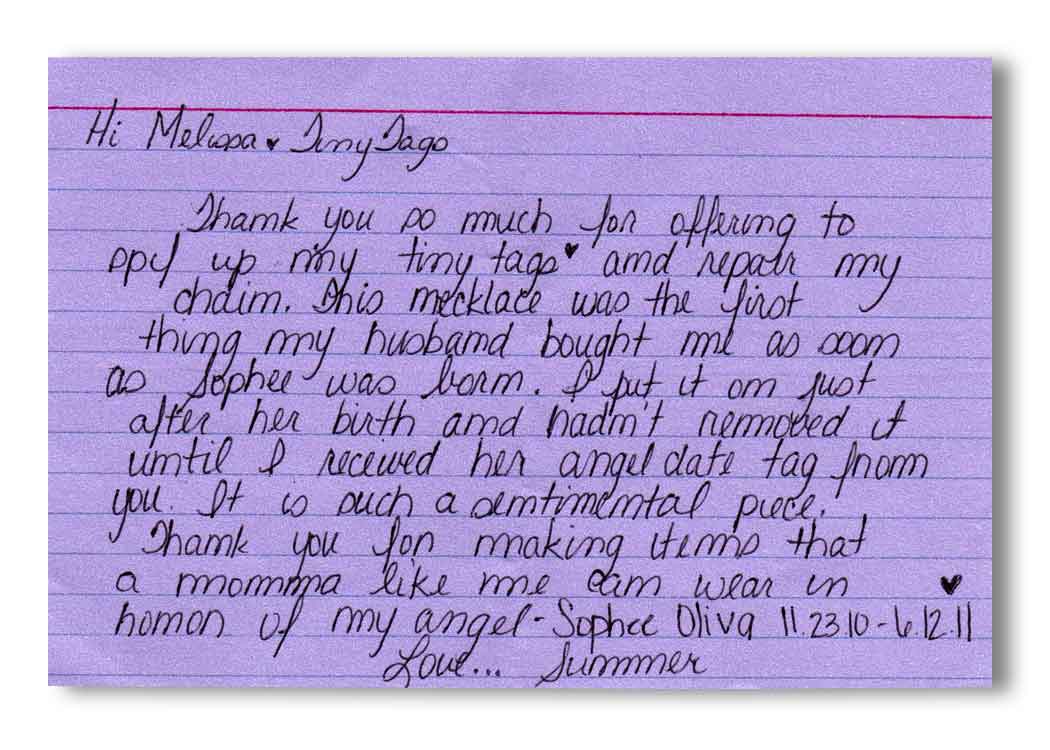 Hi Melissa ♥ Tiny Tags
Thank you so much for offering to
spif up my tiny tags ♥ and repair my
chain. This necklace was the first
thing my husband bought me as soon
as Sophee was born. I put it on just
after her birth and hadn't removed it
until I received her angel date tag from
you. It is such a sentimental piece.
Thank you for making items that
a momma like me can wear in ♥
honor of my angel - Sophee Oliva 11.23.10 - 6.12.11
Love... Summer